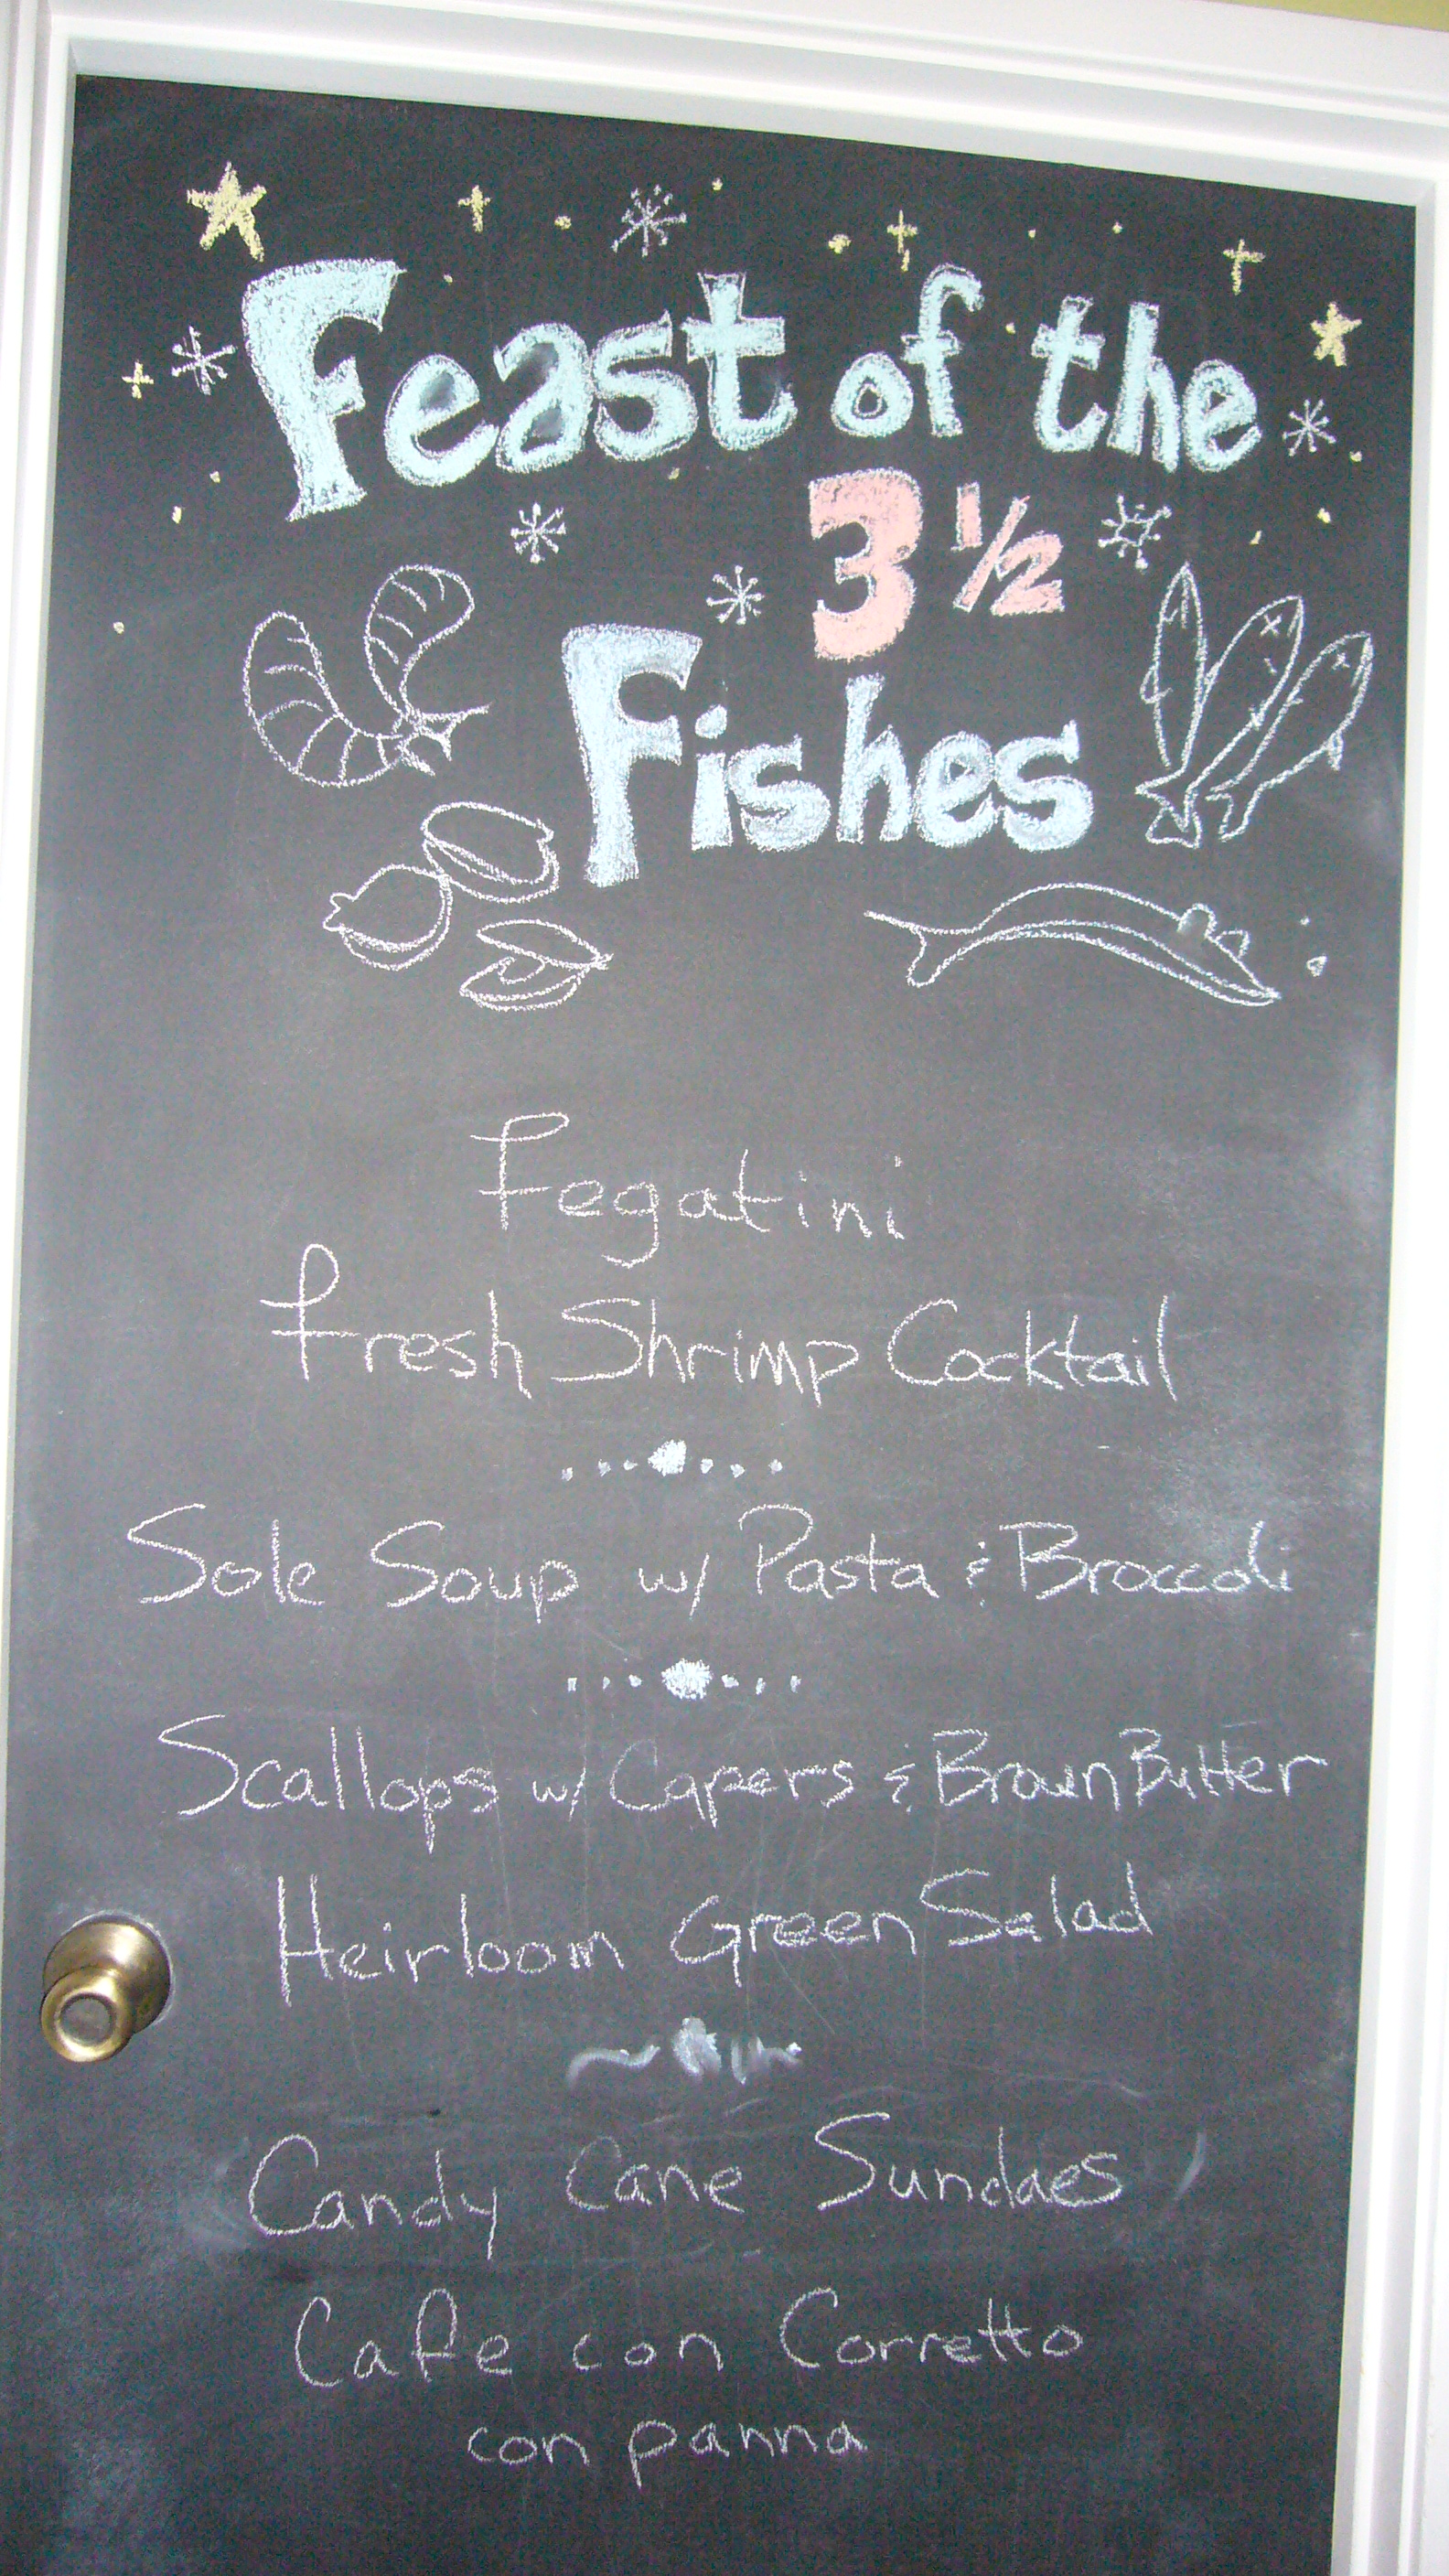 Feast of the
3 1/2
Fishes
Fegatini
Fresh Shrimp Cocktail
Sole Soup w/ Pasta & Broccoli
Scallops w/ Capers & Brown Butter
Heirloom Green Salad
Candy Cane Sundaes
Cafe con Corretto
con panna